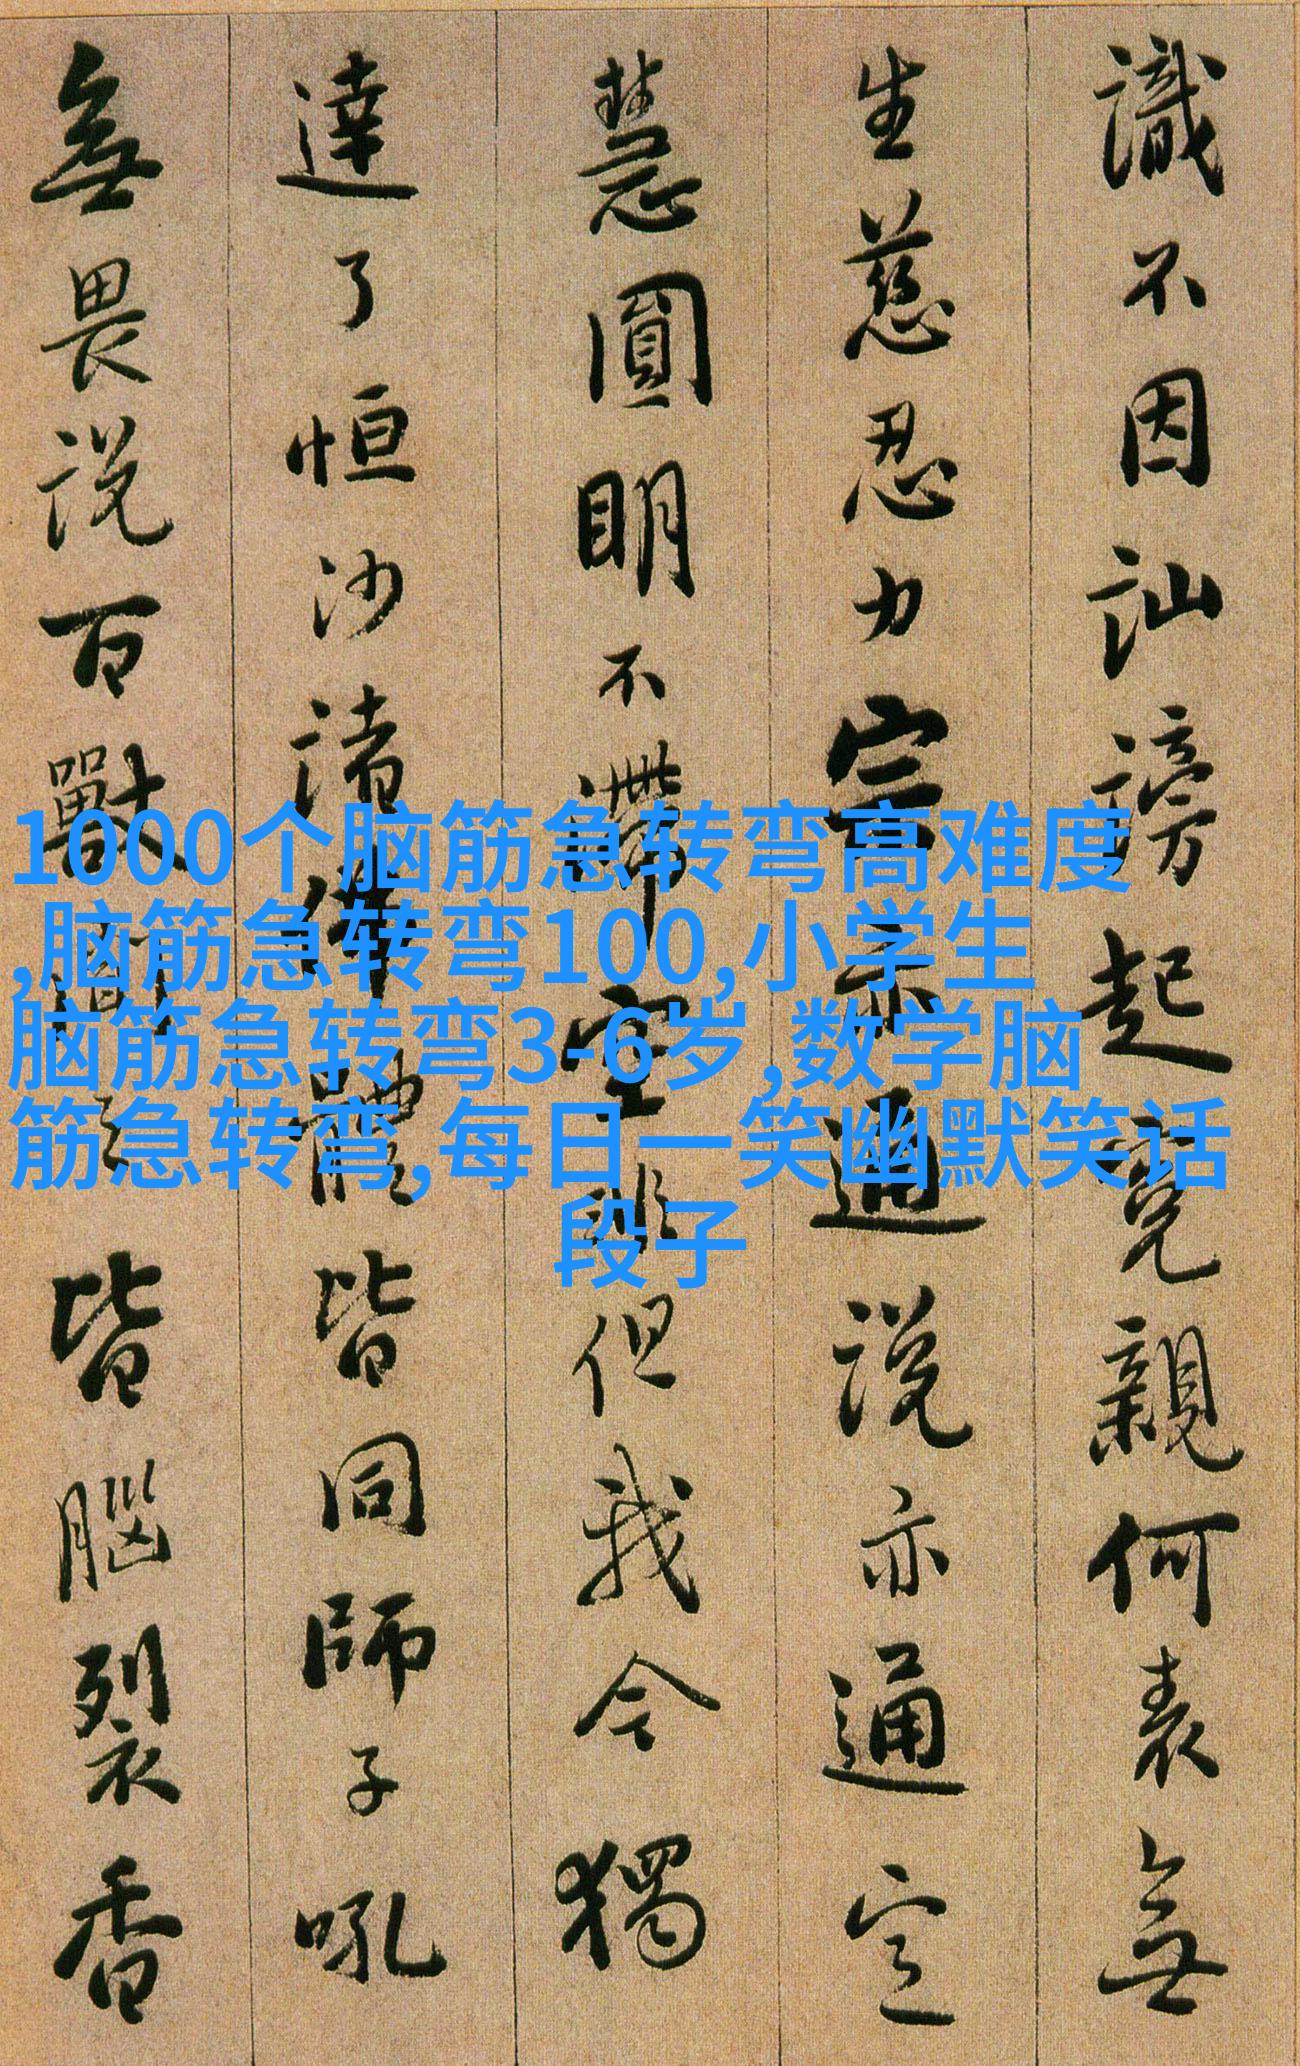 識不因訕謗起冤親何表無
生慈忍力宗亦通說亦通定
慧圓明不滯空非但我今獨
達了恒沙諸佛體皆同師子吼
無畏說百獸聞之皆腦裂香
1000个脑筋急转弯高难度
,脑筋急转弯100,小学生
脑筋急转弯3-6岁,数学脑
筋急转弯,每日一笑幽默笑话
段子